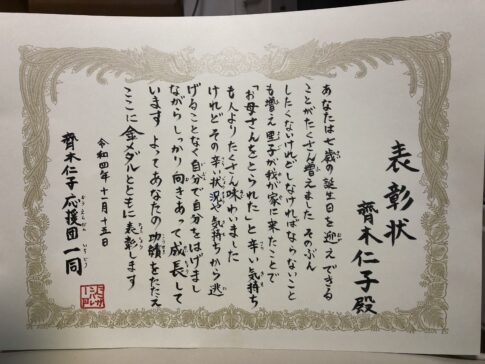 表彰状
齊木仁子殿
あなたは七歳の誕生日を迎えできる
ことがたくさん増えました そのぶん
したくないけれどしなければならないこと
も増え 里子が我が家に来たことで
「お母さんをとられた」と辛い気持ち
も人よりたくさん味わいました
けれどその辛い状況や気持ちから逃
げることなく自分で自分をはげまし
ながらしっかり向きあって成長して
います よってあなたの功績をたたえ
ここに金メダルとともに表彰します
令和四年十一月十五日
齊木仁子 応援団一同